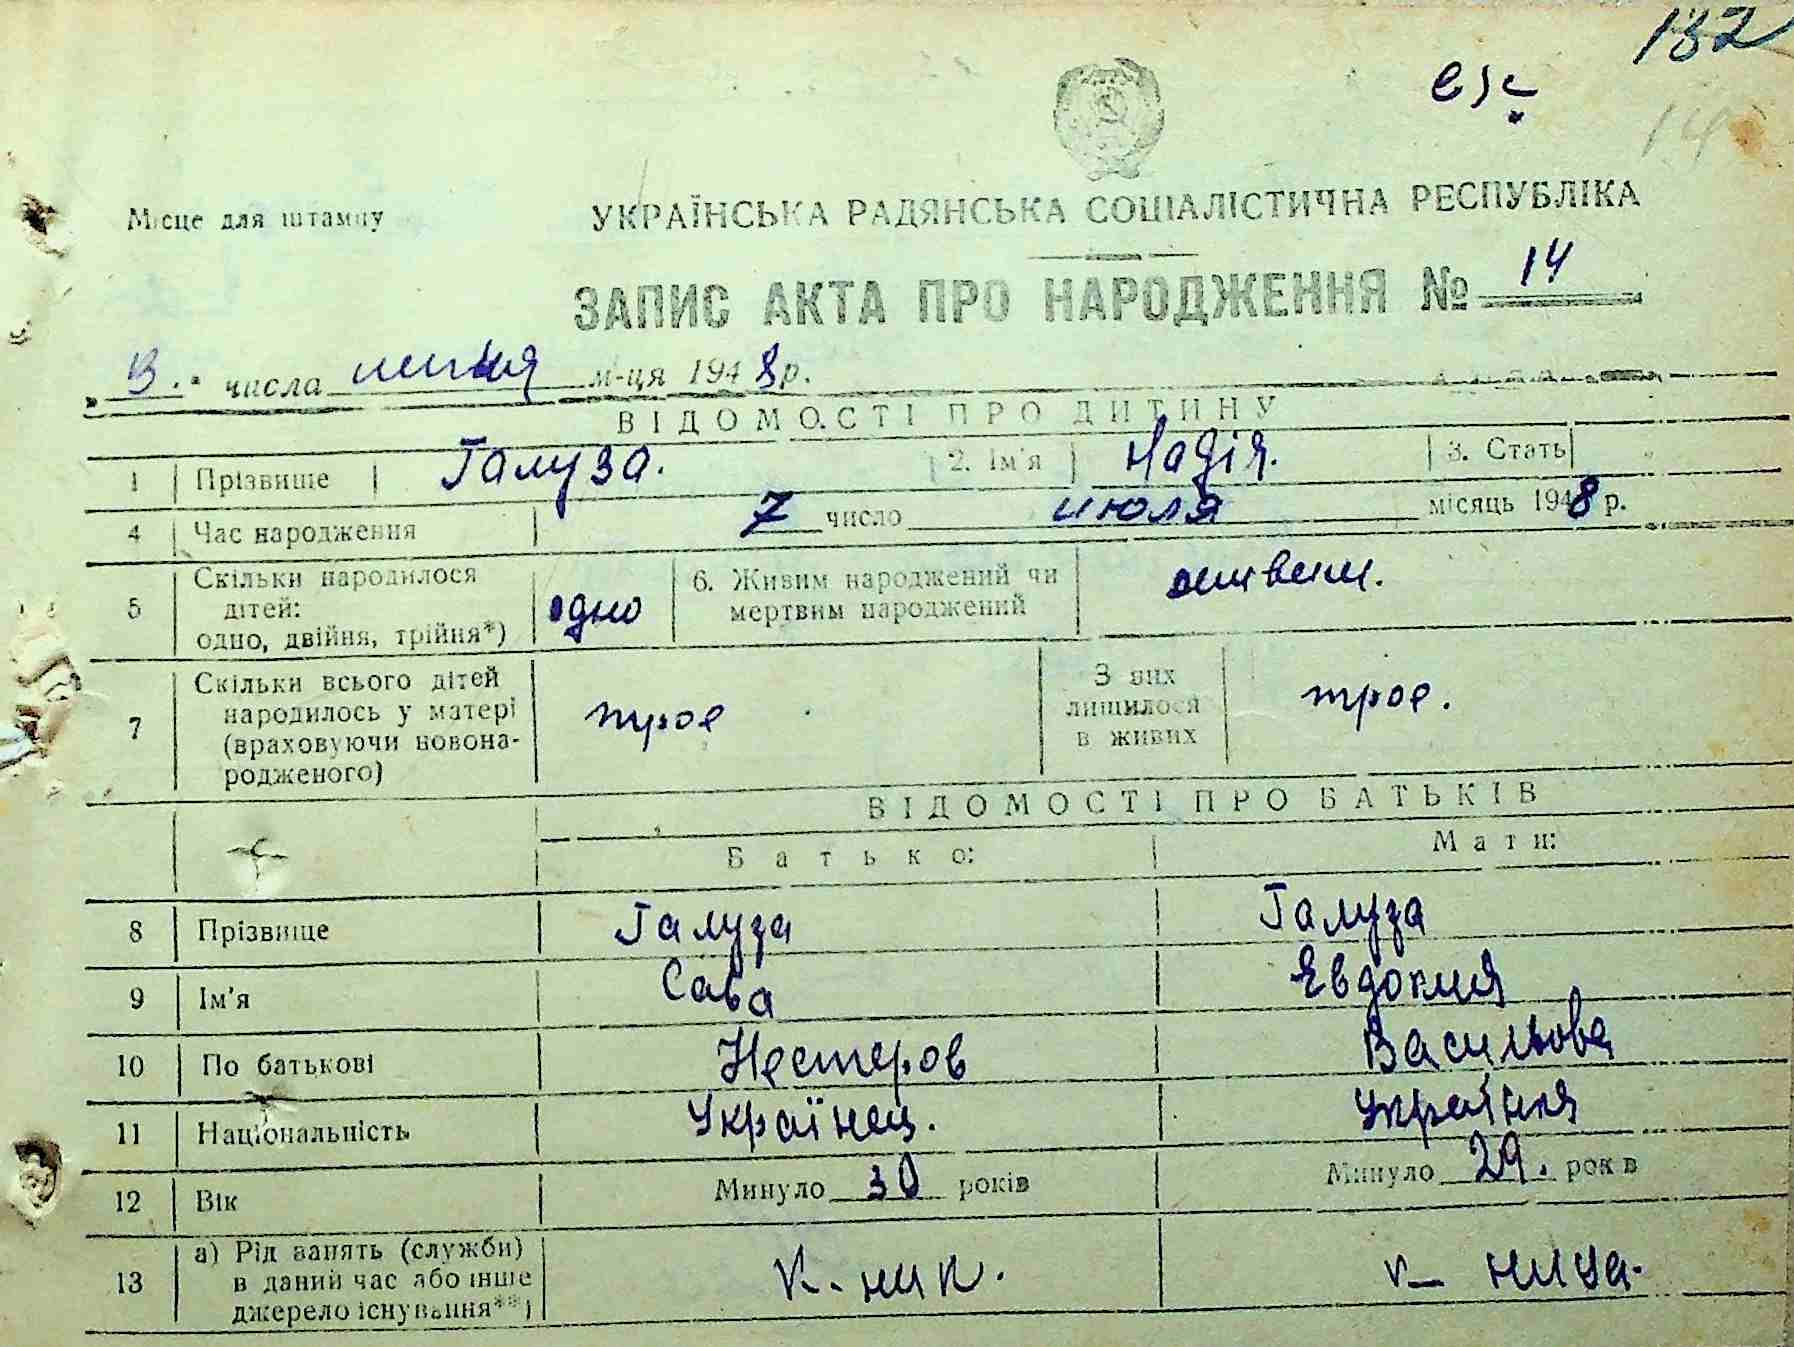 132
14
Місце для штампу
УКРАЇНСЬКА РАДЯНСЬКА СОЦІАЛІСТИЧНА РЕСПУБЛІКА
ЗАПИС АКТА ПРО НАРОДЖЕННЯ № 14
числа липня м-ця 1948 р.
ВІДОМОСТІ ПРО ДИТИНУ
1 Прізвище Галуза. 2. Ім'я Надія. 3. Стать
4 Час народження 7 число июля місяць 1948 р.
5 Скільки народилося дітей: одно, двійня, трійня*) одно 6. Живим народжений чи мертвим народжений
7 Скільки всього дітей народилось у матері (враховуючи новонародженого) трое З них лишилося в живих трое.
ВІДОМОСТІ ПРО БАТЬКІВ
Батько: Мати:
8 Прізвище Галуза Галуза
9 Ім'я Сава Евдокия
10 По батькові Нестеров Васильова
11 Національність Українец. Українка
12 Вік Минуло 30 років Минуло 29. рок в
13 а) Рід занять (служби) в даний час або інше джерело існування**) к-ник. к-ница.